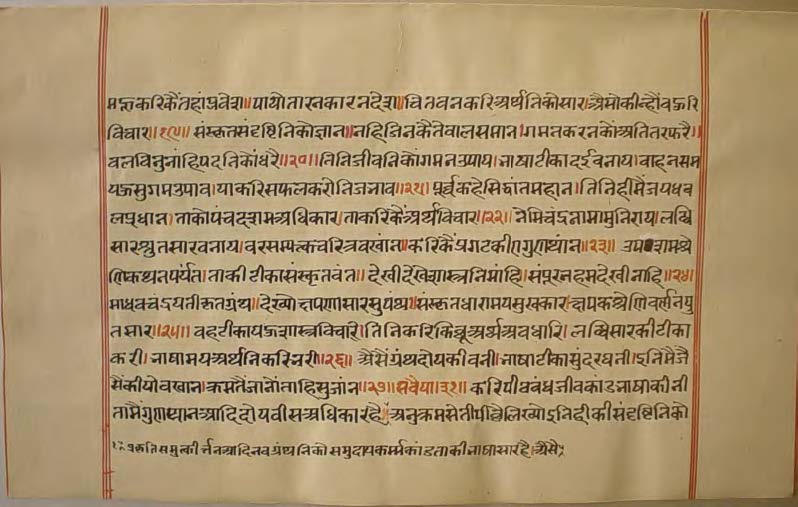 मह्नकरिकैंतहांप्रवेश॥पाथोतारनकारनदेश॥चितवनकरिअर्थनिकोसार॥अैसोकीन्हौंबहुरि
विचार॥१९॥संस्कृतसंदृष्टिनिकोज्ञान॥नहिजिनकैतेबालसमान।गमनकरनकोंअतितरफरै॥
बलविनुनांहिपदनिकोंधरै॥२०॥तिनिजीवनिकोंगमनउपाय।नाषाटीकादईबनाय।वाहनसम
यहसुगमउपाव।याकरिसफलकरोनिजनाव॥२१॥पूर्व्वकहेसिद्धांतमहान।तिनिहीमैंजयधव
लप्रधान।ताकोपंचदशमअधिकार।ताकरिकैंअर्थविचार॥२२॥नेमिचंद्रनामामुनिराय।लब्धि
सारश्रुतसारबनाय।वरसम्यक्तचरित्रबखांन।करिकैंप्रगटकीएगुणथांन॥२३॥उपशमश्रे
णिकथनपर्यंत।ताकीटीकासंस्कृतवंत॥देखीदेखेशास्त्रनिमांहि।संपूरनहमदेखीनाहि॥२४॥
माधवचंद्रयतीकृतग्रंथ॥देख्योक्षपणासारसुपंथ॥संस्कृतधारामयसुखकार।क्षपकश्रेणिवर्णनयु
तसार॥२५॥वहटीकायहशास्त्रविचारि।तिनिकरिकिछूअर्थअवधारि।लब्धिसारकीटीका
करी।नाषामयअर्थनिकरिनरी॥२६॥अैसैंग्रंथदोयकीबनी।नाषाटीकासुंदरघनी।इनिमैंजै
सैंकीयोबखान।क्रमतैंजानोंताहिसुजांन॥२७॥सवैया॥३१॥करिपीठबंधजीवकांडनाषाकीनी
तामैंगुणथानआदिदोयवीसअधिकारहै।अनुक्रमसेतीपीछैलिख्योइनिहीकीसंदृष्टिनिको
प्रकृतिसमुत्कीर्त्तनआदिनवग्रंथनिकोसमुदायकर्म्मकांडताकीनाषासारहै।अैसै